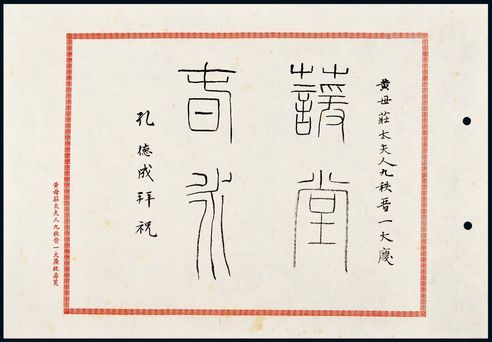 黃母莊太夫人九秩晉一大慶
蘐堂
春永
孔德成拜祝
黃母莊太夫人九秩晉一大慶祝壽箋